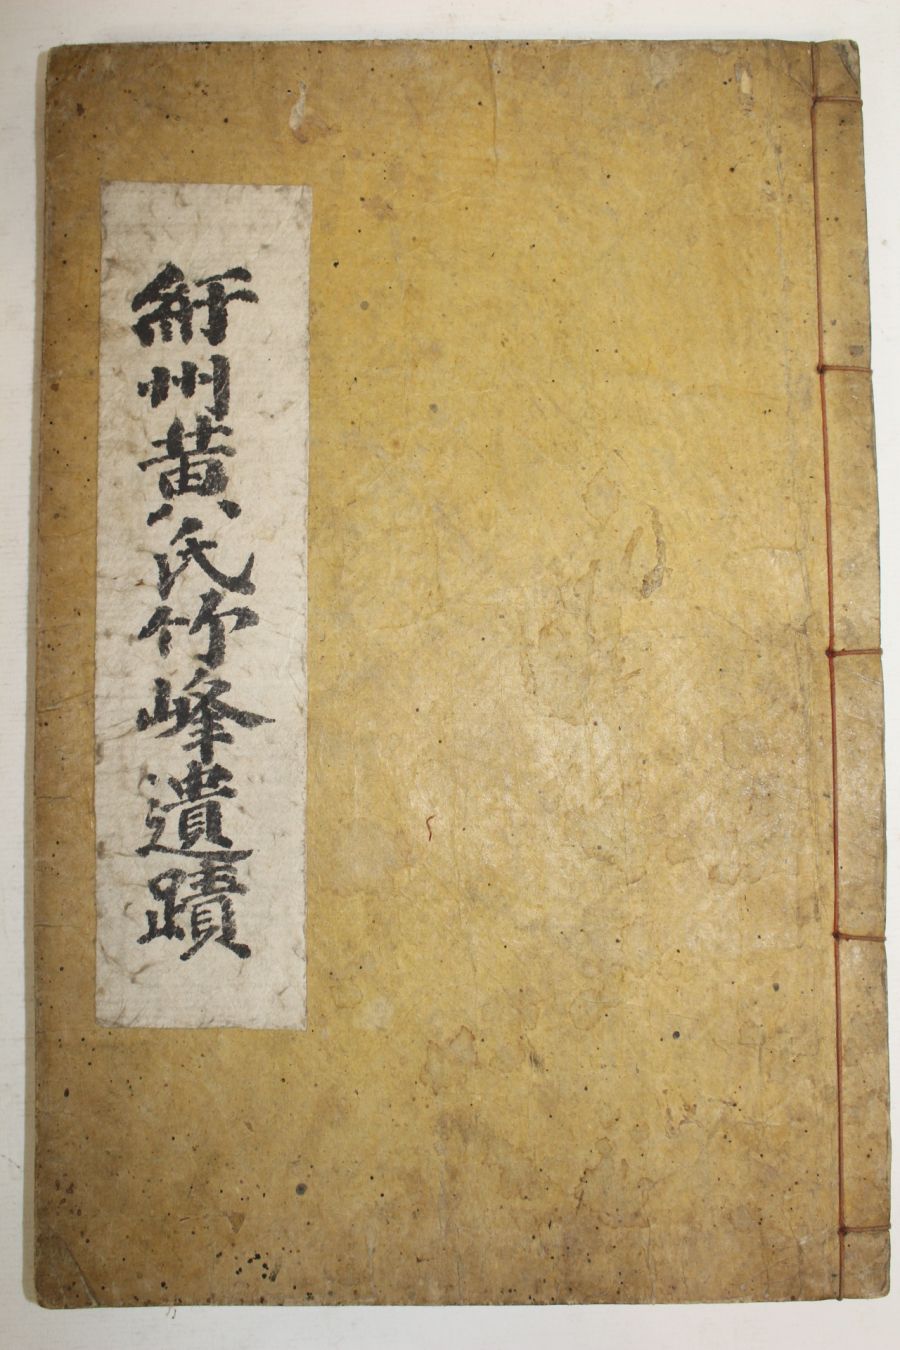 紆州黄氏竹峰遺蹟